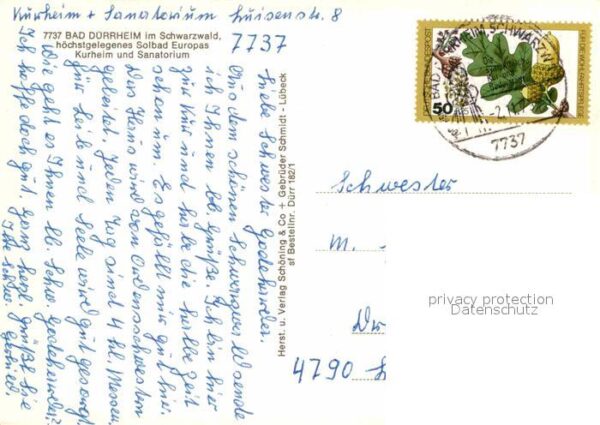 Kurheim + Sanatorium Luisenstr. 8
7737 BAD DÜRRHEIM im Schwarzwald,
höchstgelegenes Solbad Europas
Kurheim und Sanatorium
7737
Liebe Schwester Godehardis.
Aus dem schönen Schwarzwald sende
ich Ihnen lb. Grüße. Ich bin hier
zur Kur und habe die halbe Zeit
schon um. Es gefällt mir gut hier.
Das Haus wird von Ordensschwestern
geleitet. Jeden Tag sind 4 hl. Messen.
Für Leib und Seele wird gut gesorgt.
Wie geht es Ihnen lb. Schw. Godeharda?
Ich hoffe doch gut. Ganz herzl. grüßt Sie
Ihre Schw.
Herst. u. Verlag Schöning & Co + Gebrüder Schmidt - Lübeck
sf Bestellnr. Dürr 182/1
DEUTSCHE BUNDESPOST
FÜR DIE WOHLFAHRTSPFLEGE
50
BAD DÜRRHEIM, SCHWARZW
7737
Schwester
M.
4790
privacy protection
Datenschutz